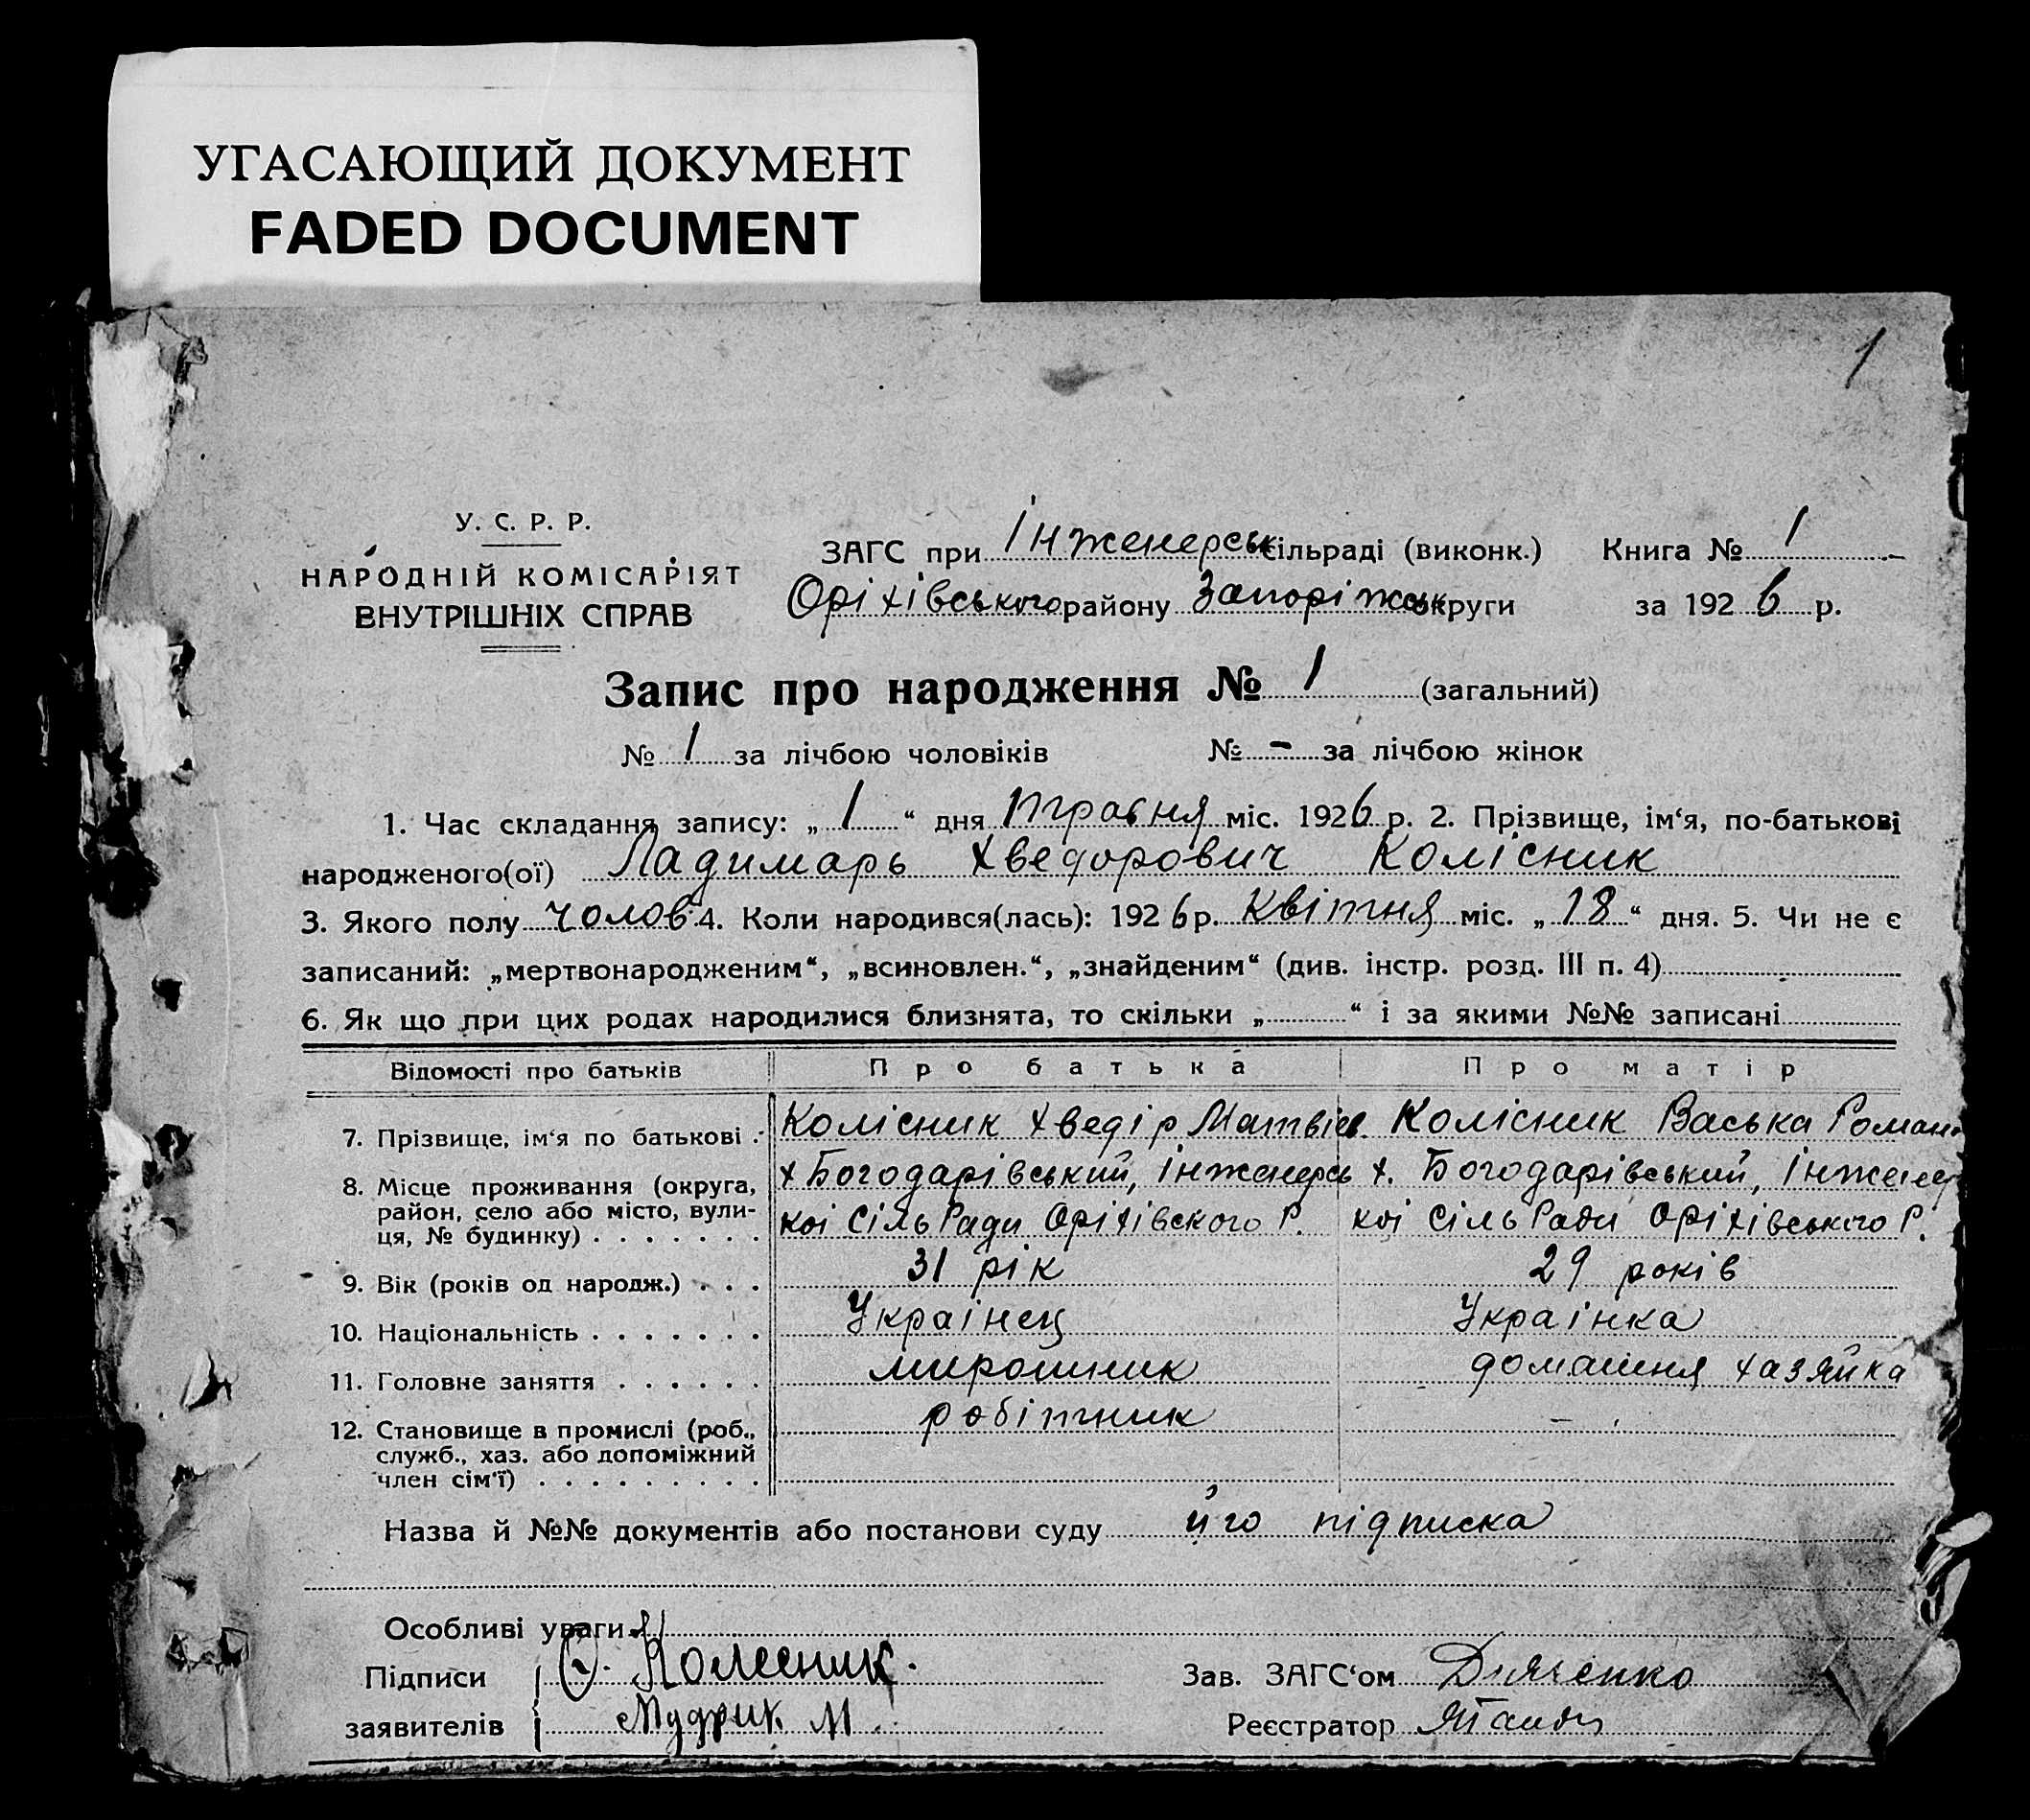 УГАСАЮЩИЙ ДОКУМЕНТ
FADED DOCUMENT
1
У. С. Р. Р.
НАРОДНІЙ КОМІСАРІЯТ
ВНУТРІШНІХ СПРАВ
ЗАГС при Інженерськ сільраді (виконк.) Книга № 1
Оріхівського району Запоріжськ округи за 1926 р.
Запис про народження № 1 (загальний)
№ 1 за лічбою чоловіків № - за лічбою жінок
1. Час складання запису: „1“ дня травня міс. 1926 р. 2. Прізвище, ім‘я, по-батькові
народженого(ої) Ладимарь Хведорович Колісник
3. Якого полу чолов. 4. Коли народився(лась): 1926 р. квітня міс. „18“ дня. 5. Чи не є
записаний: „мертвонародженим“, „всиновлен.“, „знайденим“ (див. інстр. розд. III п. 4)
6. Як що при цих родах народилися близнята, то скільки „ “ і за якими №№ записані
Відомості про батьків Про батька Про матір
7. Прізвище, ім‘я по батькові . Колісник Хведір Матвієв. Колісник Васька Роман
8. Місце проживання (округа, х Богодарівський, Інженерсь х. Богодарівський, Інженер
район, село або місто, вули- кої СільРади Оріхівского Р. кої СільРади Оріхівського Р.
ця, № будинку) . . . . . . .
9. Вік (років од народж.) . . . 31 рік 29 років
10. Національність . . . . . . . Украінец Украінка
11. Головне заняття . . . . . . мирошник домашня хазяйка
12. Становище в промислі (роб., робітник -
служб., хаз. або допоміжний
член сім‘ї) . . . . . . . . .
Назва й №№ документів або постанови суду його підписка
Особливі уваги
Підписи Ф. Колесник. Зав. ЗАГС‘ом Дяченко
заявителів Мудрик М. Реєстратор